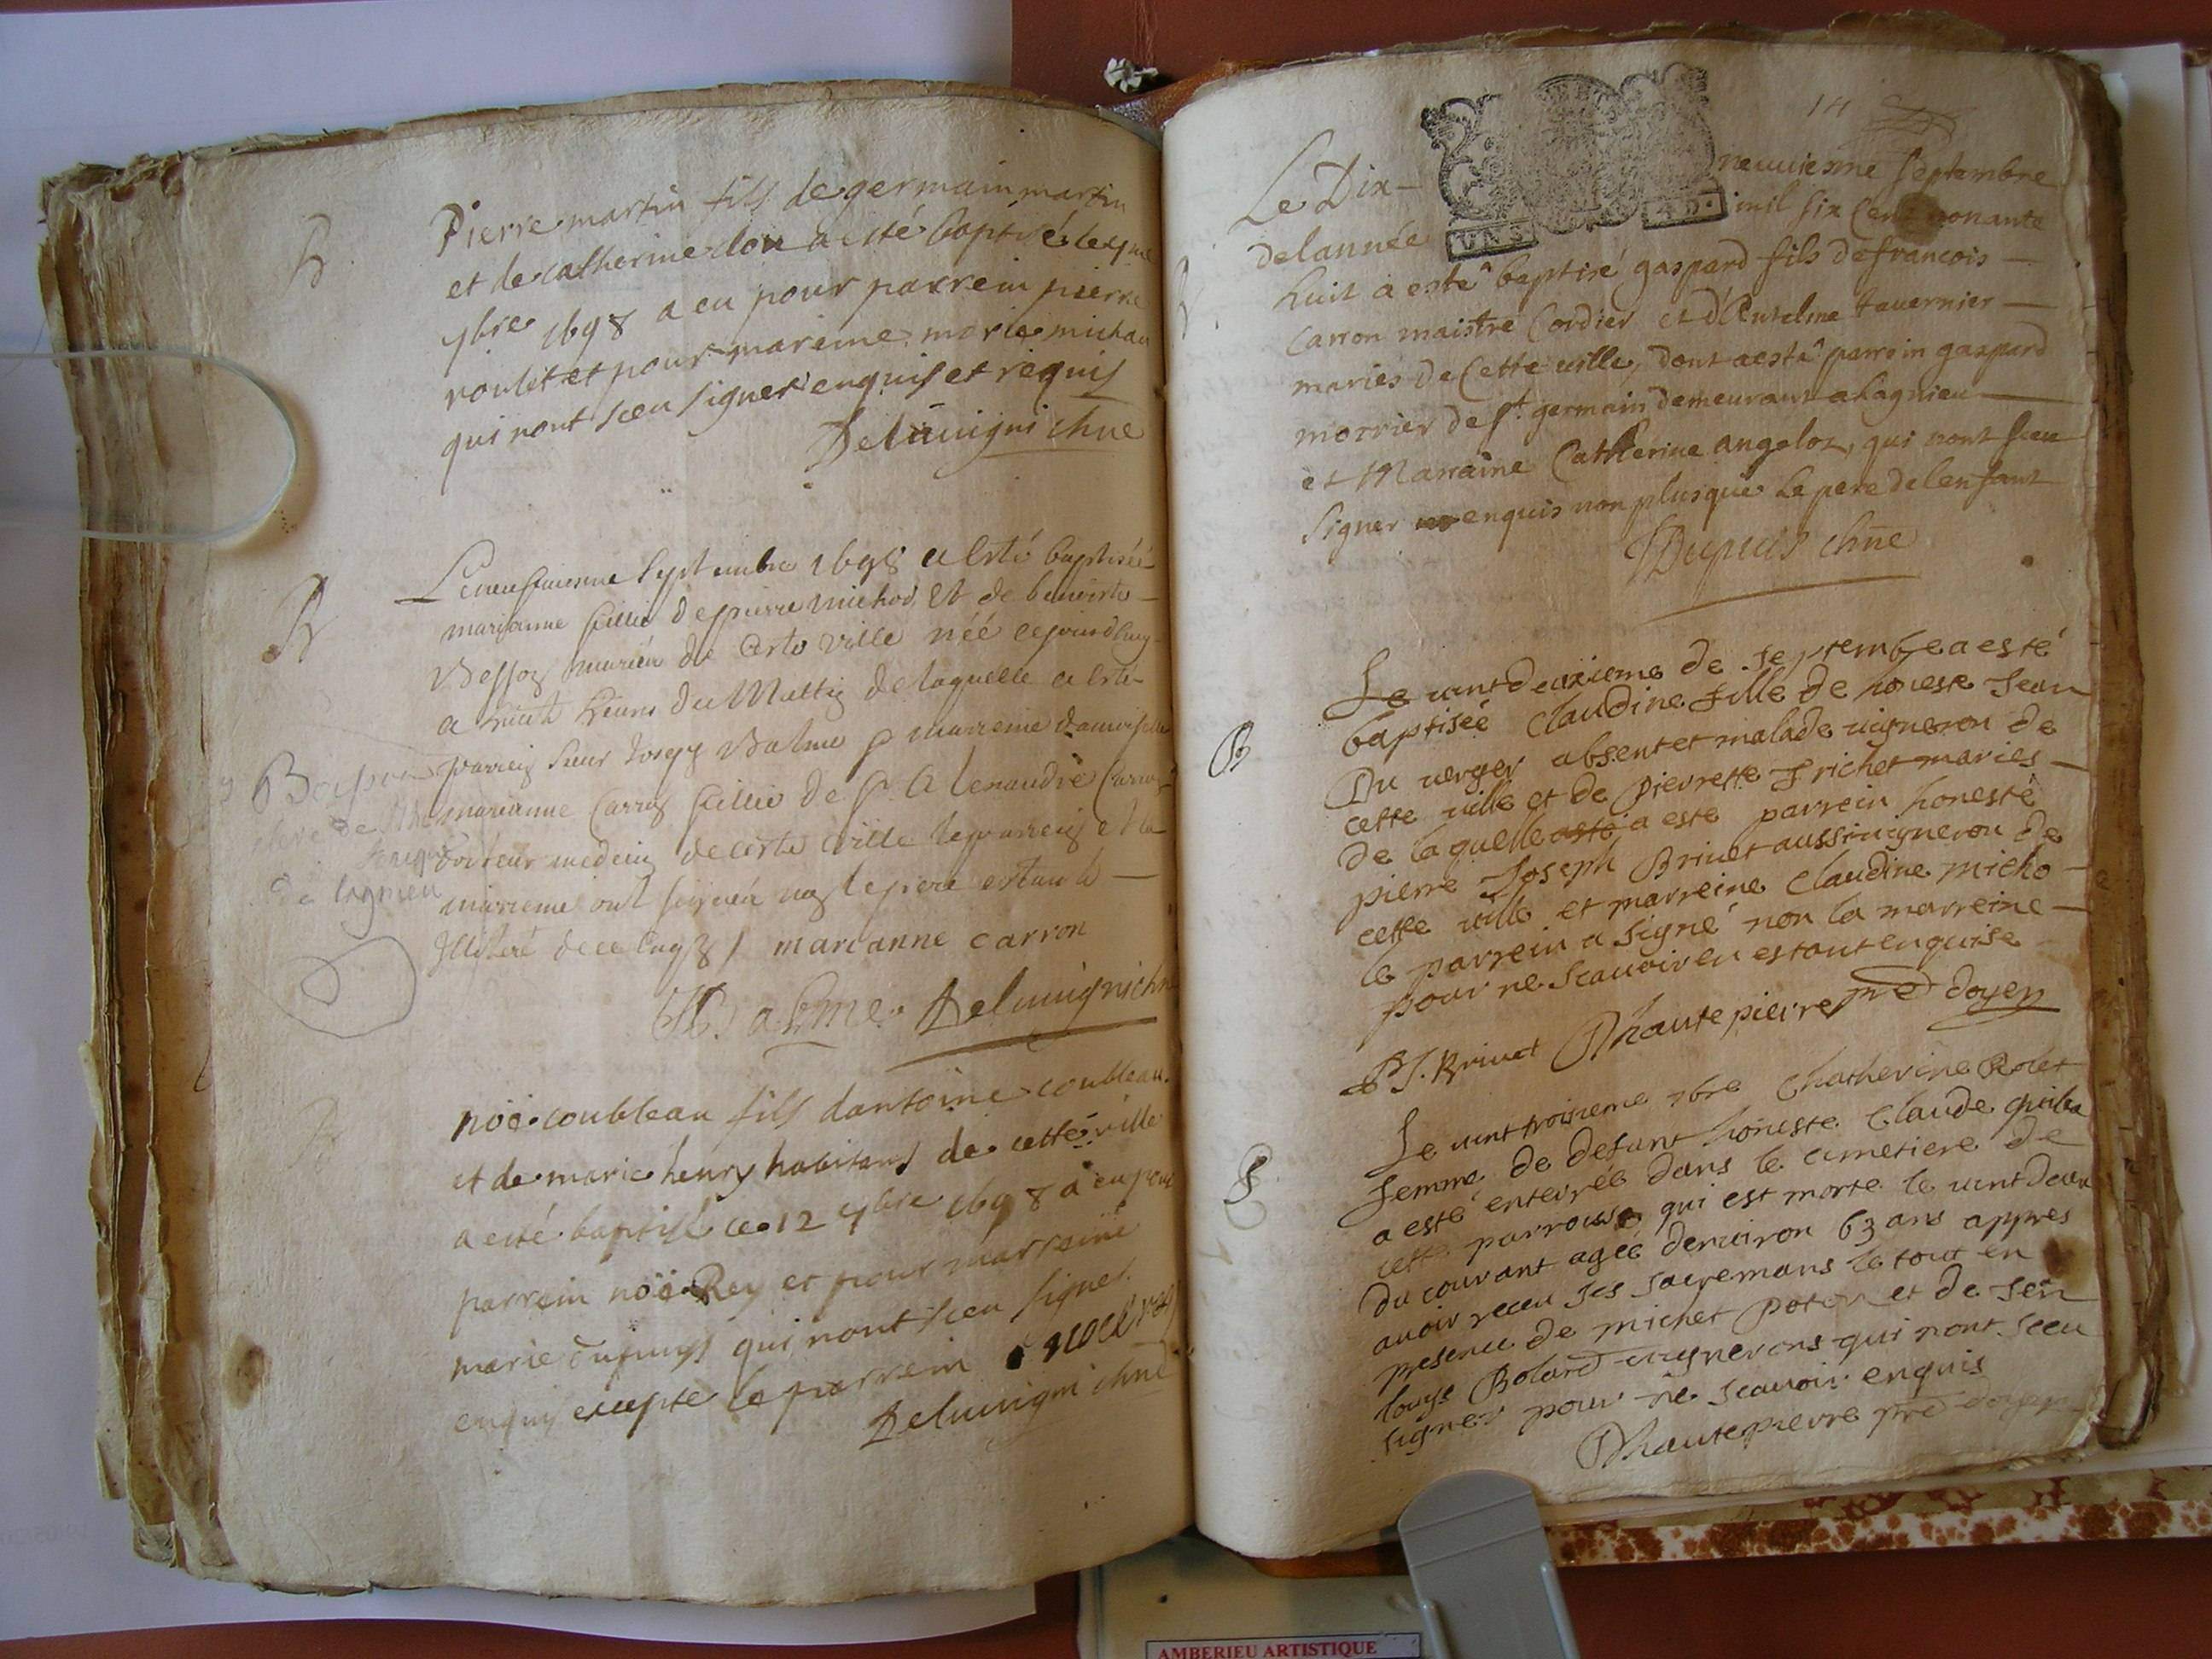 B
Pierre martin fils de germain martin
et de catherine lou a esté baptisé le 9me
7bre 1698 a eu pour parrein pierre
roulet et pour mareine marie michau
qui nont sceu signer enquis et requis
Deluuigni chne
B
Le neufuiesme Septembre 1698 a esté baptisée
marianne fillie de pierre michod et de benoiste
mariés de ceste ville née cejourdhuy
a huit heures du Mattin de laquelle a esté
parrein sieur Balme marreine
marianne Carron fillie de Sr Alexandre Carron
docteur medecin de ceste ville le parrein et la
marreine ont signés non le pere estant
Illiteré de ce enquis / marianne carron
Balme Deluuigni chne
de lagnieu
B
noë coubleau fils dantoine coubleau
et de marie henry habitans de cette ville
a esté baptisé ce 12 7bre 1698 a eu pour
parrein noë Rey et pour marreine
marie dupuys qui nont sceu signer
enquis excepte le parrein noel rey
Deluuigni chne
14
Le Dix- neuuiesme Septembre
de lannée mil six Cent nonante
huit a estê baptisé gaspard fils de francois
Carron maistre Cordier et d'Antelme tauernier
mariés de Cette uille, dont a estê parrein gaspard
morrier de St. germain demeurant a Lagnieu
et Marraine Catherine angelot, qui nont sceu
signer enquis non plus que le pere de lenfant
Dupuis chne
B
Le uintdeuxieme de septembre a esté
baptisée Claudine fille de honeste Jean
Du uerger absent et malade uigneron de
cette uille et de Pierrette frichet mariés
de laquelle a este parrein honeste
pierre Joseph Briuet aussi uigneron de
cette uille et marreine Claudine micho
le parrein a signé non la marreine
pour ne scauoir en estant enquise
P J. Briuet Dhautepierre pre doyen
S
Le uint troisieme 7bre Chatherine Rolet
femme de defunt honeste Claude
a esté enterrée dans le cimetiere de
cette parroisse qui est morte le uint deux
du courant agée denuiron 63 ans appres
auoir receu ses sacremans le tout en
presence de michel et de
louys Bolard uignerons qui nont sceu
signer pour ne scauoir enquis
Dhautepierre pre doyen
AMBERIEU ARTISTIQUE